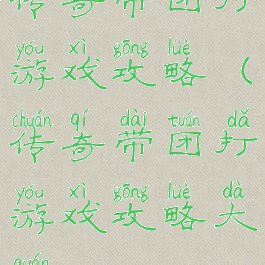 传奇带团打
yóu xì gōng luè
游戏攻略（
chuán qí dài tuán dǎ
传奇带团打
yóu xì gōng luè dà
游戏攻略大
quán